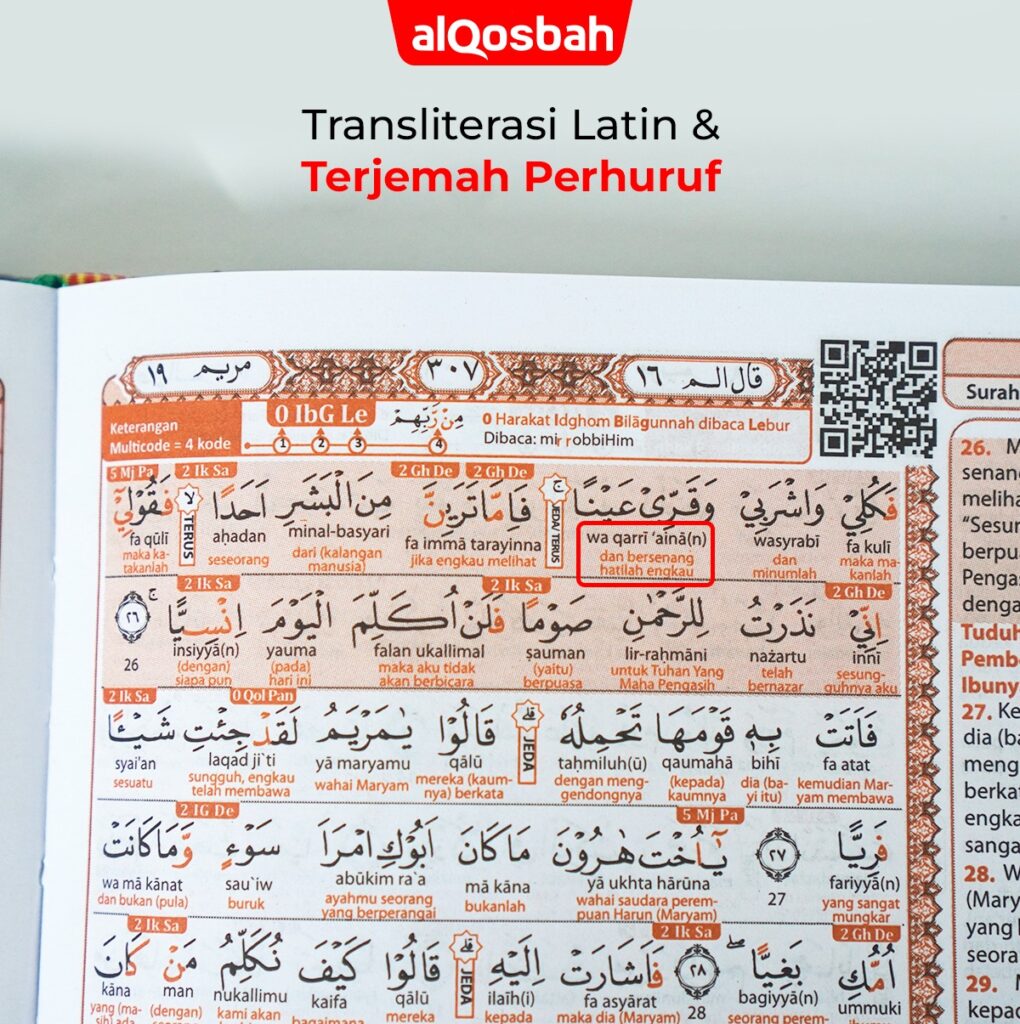 alQosbah
Transliterasi Latin &
Terjemah Perhuruf
قال الم ١٦
٣٠٧
مريم ١٩
Keterangan
Multicode = 4 kode
0 IbG Le
1 2 3 4
مِنْ رَّبِّهِمْ
0 Harakat Idghom Bilāgunnah dibaca Lebur
Dibaca: mir robbiHim
5 Mj Pa 2 Ik Sa 2 Gh De 2 Gh De
فَكُلِيْ وَاشْرَبِيْ وَقَرِّيْ عَيْنًا ۚ فَاِمَّا تَرَيِنَّ مِنَ الْبَشَرِ اَحَدًا ۙ فَقُوْلِيْٓ
JEDA/ TERUS
TERUS
fa qūlī aḥadan minal-basyari fa immā tarayinna wa qarrī ‘ainā(n) wasyrabī fa kulī
maka ka-takanlah seseorang dari (kalangan manusia) jika engkau melihat dan bersenang hatilah engkau dan minumlah maka ma-kanlah
2 Ik Sa 2 Ik Sa 2 Gh De
اِنِّيْ نَذَرْتُ لِلرَّحْمٰنِ صَوْمًا فَلَنْ اُكَلِّمَ الْيَوْمَ اِنْسِيًّا ۚ ٢٦
26 insiyyā(n) yauma falan ukallimal ṣauman lir-raḥmāni nażartu innī
(dengan) siapa pun (pada) hari ini maka aku tidak akan berbicara (yaitu) berpuasa untuk Tuhan Yang Maha Pengasih telah bernazar sesung-guhnya aku
2 Ik Sa 0 Qol Pan
فَاَتَتْ بِهٖ قَوْمَهَا تَحْمِلُهٗ ۗ قَالُوْا يٰمَرْيَمُ لَقَدْ جِئْتِ شَيْـًٔا
JEDA
syai'an laqad ji`ti yā maryamu qālū taḥmiluh(ū) qaumahā bihī fa atat
sesuatu sungguh, engkau telah membawa wahai Maryam mereka (kaum-nya) berkata dengan meng-gendongnya (kepada) kaumnya dia (ba-yi itu) kemudian Mar-yam membawa
2 IG De 5 Mj Pa
فَرِيًّا ٢٧ يٰٓاُخْتَ هٰرُوْنَ مَا كَانَ اَبُوْكِ امْرَاَ سَوْءٍ وَّمَا كَانَتْ
wa mā kānat sau`iw abūkim ra`a mā kāna yā ukhta hārūna 27 fariyyā(n)
dan bukan (pula) buruk ayahmu seorang yang berperangai bukanlah wahai saudara perem-puan Harun (Maryam) yang sangat mungkar
2 Ik Sa 2 Ik Sa 2 Gh De
اُمُّكِ بَغِيًّا ۖ ٢٨ فَاَشَارَتْ اِلَيْهِ ۗ قَالُوْا كَيْفَ نُكَلِّمُ مَنْ كَانَ
JEDA
kāna man nukallimu kaifa qālū ilaih(i) fa asyārat 28 bagiyyā(n) ummuki
yang (ma-sih) ada (dengan) kami akan bagaimana mereka kepada maka dia (Maryam) seorang perem- ibumu
Surah
26. M
senang
meliha
“Sesun
berpua
Pengas
denga
Tuduh
Pembe
Ibuny
27. Ke
dia (ba
meng
berkat
engka
sanga
28. W
(Mary
yang
seora
29. M
kepad